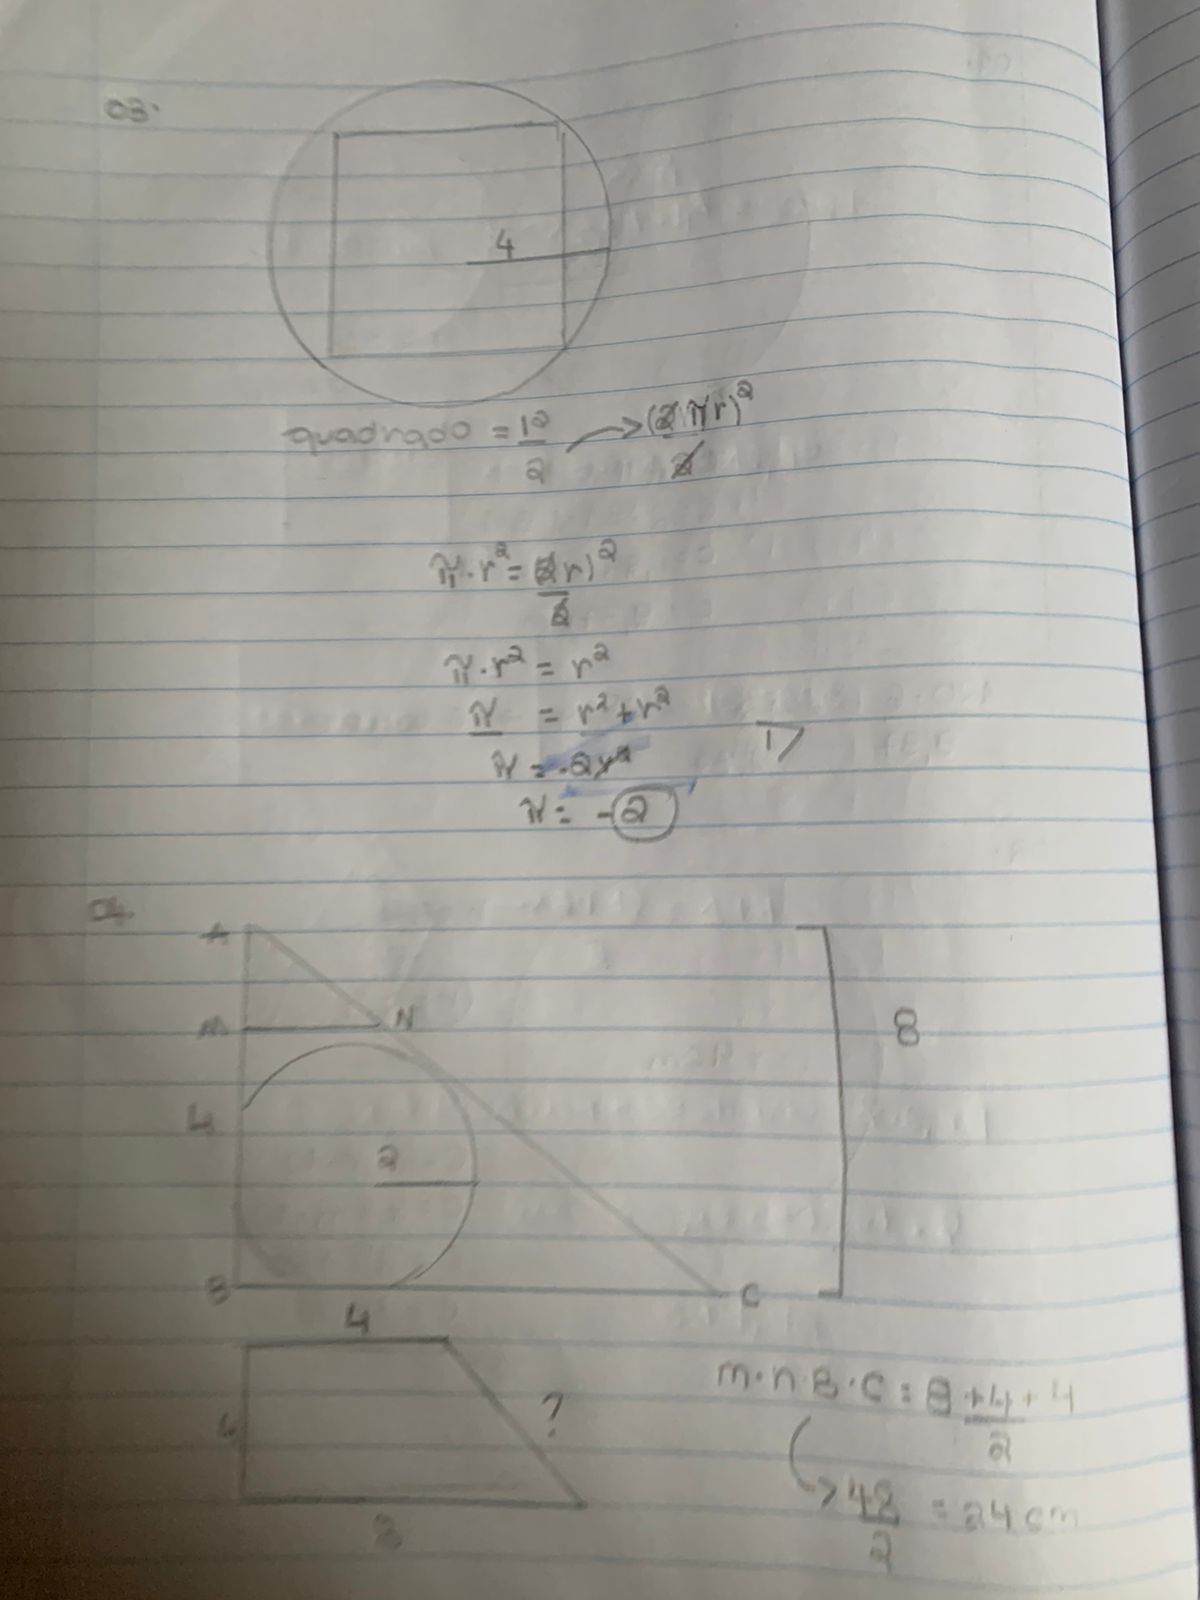 03.
4
quadrado = 12/2 → (2πr)²/2
π·r² = (2r)²/2
π·r² = r²
π = r² + r²
π = -2r²
π = -2
04.
A
M N
8
4
2
B C
4
4 ?
M·N·B·C = 8+4+4/2
→ 48/2 = 24 cm